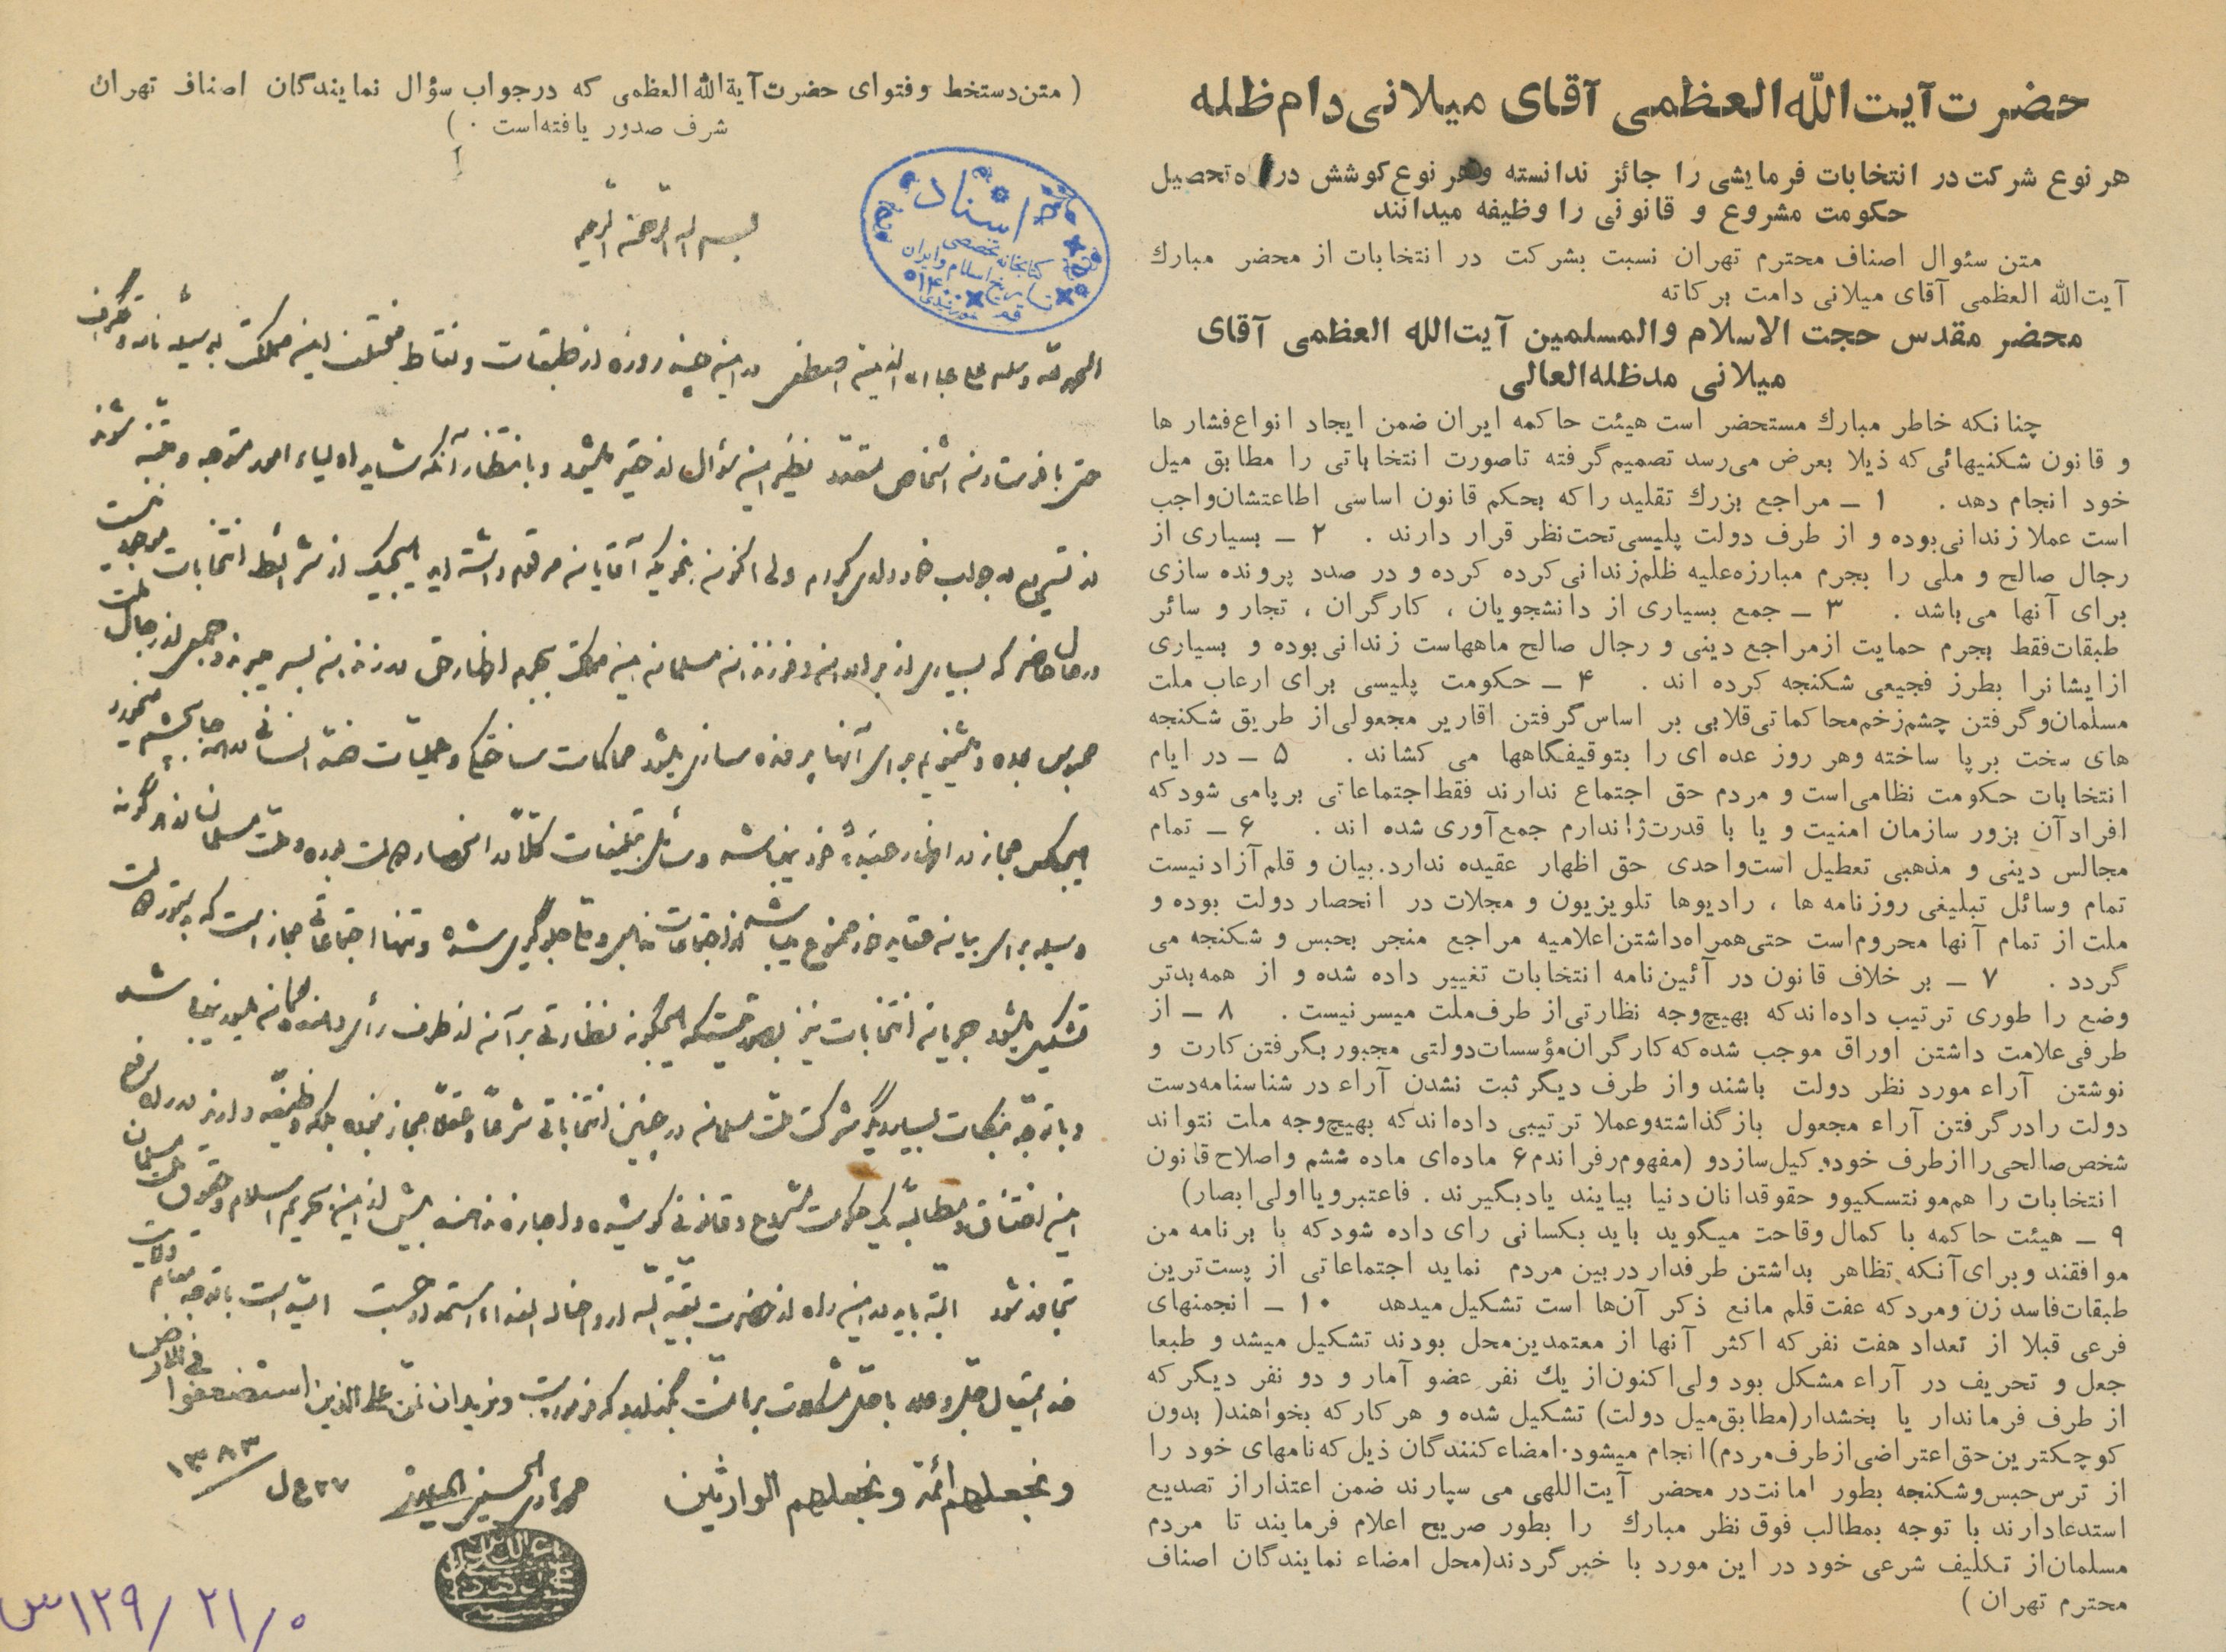 حضرت‌آیت‌الله‌العظمی آقای میلانی‌دام‌ظله
هر نوع شرکت‌در انتخابات فرمایشی را جائز ندانسته وهر نوع کوشش در راه تحصیل
حکومت مشروع و قانونی را وظیفه میدانند
متن سئوال اصناف محترم تهران نسبت بشرکت در انتخابات از محضر مبارك
آیت‌الله العظمی آقای میلانی دامت برکاته
محضر مقدس حجت الاسلام والمسلمین آیت‌الله العظمی آقای
میلانی مدظله‌العالی
چنانکه خاطر مبارك مستحضر است هیئت حاکمه ایران ضمن ایجاد انواع‌فشار ها
و قانون شکنیهائی‌که ذیلا بعرض می‌رسد تصمیم‌گرفته تاصورت انتخاباتی را مطابق میل
خود انجام دهد . ۱ ـ مراجع بزرك تقلید راکه بحکم قانون اساسی اطاعتشان‌واجب
است عملا زندانی‌بوده و از طرف دولت پلیسی‌تحت‌نظر قرار دارند . ۲ ـ بسیاری از
رجال صالح و ملی را بجرم مبارزه‌علیه ظلم‌زندانی‌کرده کرده و در صدد پرونده سازی
برای آنها می‌باشد . ۳ ـ جمع بسیاری از دانشجویان ، کارگران ، تجار و سائر
طبقات‌فقط بجرم حمایت ازمراجع دینی و رجال صالح ماههاست زندانی‌بوده و بسیاری
ازایشانرا بطرز فجیعی شکنجه کرده اند . ۴ ـ حکومت پلیسی برای ارعاب ملت
مسلمان‌وگرفتن چشم‌زخم‌محاکماتی‌قلابی بر اساس‌گرفتن اقاریر مجعولی‌از طریق شکنجه
های سخت برپا ساخته وهر روز عده ای را بتوقیفگاهها می کشاند . ۵ ـ در ایام
انتخابات حکومت نظامی‌است و مردم حق اجتماع ندارند فقط‌اجتماعاتی برپامی شودکه
افرادآن بزور سازمان امنیت و یا با قدرت‌ژاندارم جمع‌آوری شده اند . ۶ ـ تمام
مجالس دینی و مذهبی تعطیل است‌واحدی حق اظهار عقیده ندارد.بیان و قلم‌آزادنیست
تمام وسائل تبلیغی روزنامه ها ، رادیوها تلویزیون و مجلات در انحصار دولت بوده و
ملت از تمام آنها محروم‌است حتی‌همراه‌داشتن‌اعلامیه مراجع منجر بحبس و شکنجه می
گردد . ۷ ـ بر خلاف قانون در آئین‌نامه انتخابات تغییر داده شده و از همه‌بدتر
وضع را طوری ترتیب داده‌اندکه بهیچ‌وجه نظارتی‌از طرف‌ملت میسر نیست . ۸ ـ از
طرفی‌علامت داشتن اوراق موجب شده‌که‌کارگران‌مؤسسات‌دولتی مجبور بگرفتن‌کارت و
نوشتن آراء مورد نظر دولت باشند واز طرف دیگر ثبت نشدن آراء در شناسنامه‌دست
دولت رادرگرفتن آراء مجعول بازگذاشته‌وعملا ترتیبی داده‌اندکه بهیچ‌وجه ملت نتواند
شخص‌صالحی‌را‌ازطرف خود‌وکیل‌سازد‌و (مفهوم‌رفراندم۶ ماده‌ای ماده ششم واصلاح‌قانون
انتخابات را هم‌مونتسکیوو حقوقدانان‌دنیا بیایند یادبگیرند . فاعتبرویااولی‌ابصار)
۹ ـ هیئت حاکمه با کمال وقاحت میگوید باید بکسانی رای داده شودکه با برنامه من
موافقند وبرای‌آنکه تظاهر بداشتن طرفدار دربین مردم نماید اجتماعاتی از پست‌ترین
طبقات‌فاسد زن ومردکه عفت قلم مانع ذکر آن‌ها است تشکیل میدهد ۱۰ ـ انجمنهای
فرعی قبلا از تعداد هفت نفرکه اکثر آنها از معتمدین‌محل بودند تشکیل میشد و طبعا
جعل و تحریف در آراء مشکل بود ولی‌اکنون‌از یك نفر عضو آمار و دو نفر دیگرکه
از طرف فرماندار یا بخشدار(مطابق‌میل دولت) تشکیل شده و هرکارکه بخواهند( بدون
کوچکترین‌حق‌اعتراضی‌ازطرف‌مردم)انجام میشود.امضاءکنندگان ذیل‌که‌نامهای خود را
از ترس‌حبس‌وشکنجه بطور امانت‌در محضر آیت‌اللهی می سپارند ضمن اعتذاراز تصدیع
استدعادارند با توجه بمطالب فوق نظر مبارك را بطور صریح اعلام فرمایند تا مردم
مسلمان‌از تکلیف شرعی خود در این مورد با خبرگردند(محل امضاء نمایندگان اصناف
محترم تهران )
( متن‌دستخط وفتوای حضرت‌آیةالله‌العظمی که درجواب سؤال نمایندگان اصناف تهران
شرف صدور یافته‌است . )
اسناد
کتابخانه تخصصی
تاریخ اسلام و ایران
قم
بسم الله الرحمن الرحیم
الحمدلله وسلام علی عباده الذین اصطفی در این چند روزه از طبقات و نقاط مختلف این مملکت بوسیله نامه و تلگراف
حتی با فرستادن اشخاص متعدد نظیر این سؤال از حقیر میشود و بانتظار آنکه شاید اولیاء امور متوجه و متنبه شوند
در جواب خودداری کردم ولی اکنون بنحویکه آقایان مرقوم داشته‌اید هیچیک از شرائط انتخابات موجود نیست
در حال حاضر که بسیاری از برادران و فرزندان مسلمان این مملکت بجرم اظهار حق در زندان بسر میبرند و جمعی از رجال ملت
محبوس بوده و برای آنها پرونده سازی میشود محاکمات ساختگی و عملیات ضد انسانی در همه جا بچشم میخورد
هیچکس مجاز در اظهار عقیده خود نمیباشد و وسائل تبلیغات کلاً در انحصار دولت بوده و ملت مسلمان از هرگونه
وسیله برای بیان عقاید خود ممنوع میباشد از اجتماعات جلوگیری شده و تنها اجتماعاتی مجاز است که بدستور دولت
تشکیل میشود جریان انتخابات نیز بصورتیست که هیچگونه نظارتی بر آن از طرف رأی دهندگان میسور نمیباشد
و با توجه بنکات بسیار دیگر شرکت ملت مسلمان در چنین انتخاباتی شرعاً و عقلاً مجاز نبوده بلکه وظیفه دارند در راه رفع
این اختناق و مطالبه یک حکومت مشروع و قانونی کوشیده و اجازه ندهند بیش از این بحریم اسلام و حقوق ملت مسلمان
تجاوز شود البته باید در این راه از حضرت بقیة الله ارواحنا له الفداء استمداد جست
ونرید ان نمن علی الذین استضعفوا فی الارض
و نجعلهم ائمة و نجعلهم الوارثین
محمد هادی الحسینی المیلانی
۲۷ ع ل / ۱۳۸۳
۱۲۹/۲۱/۰س